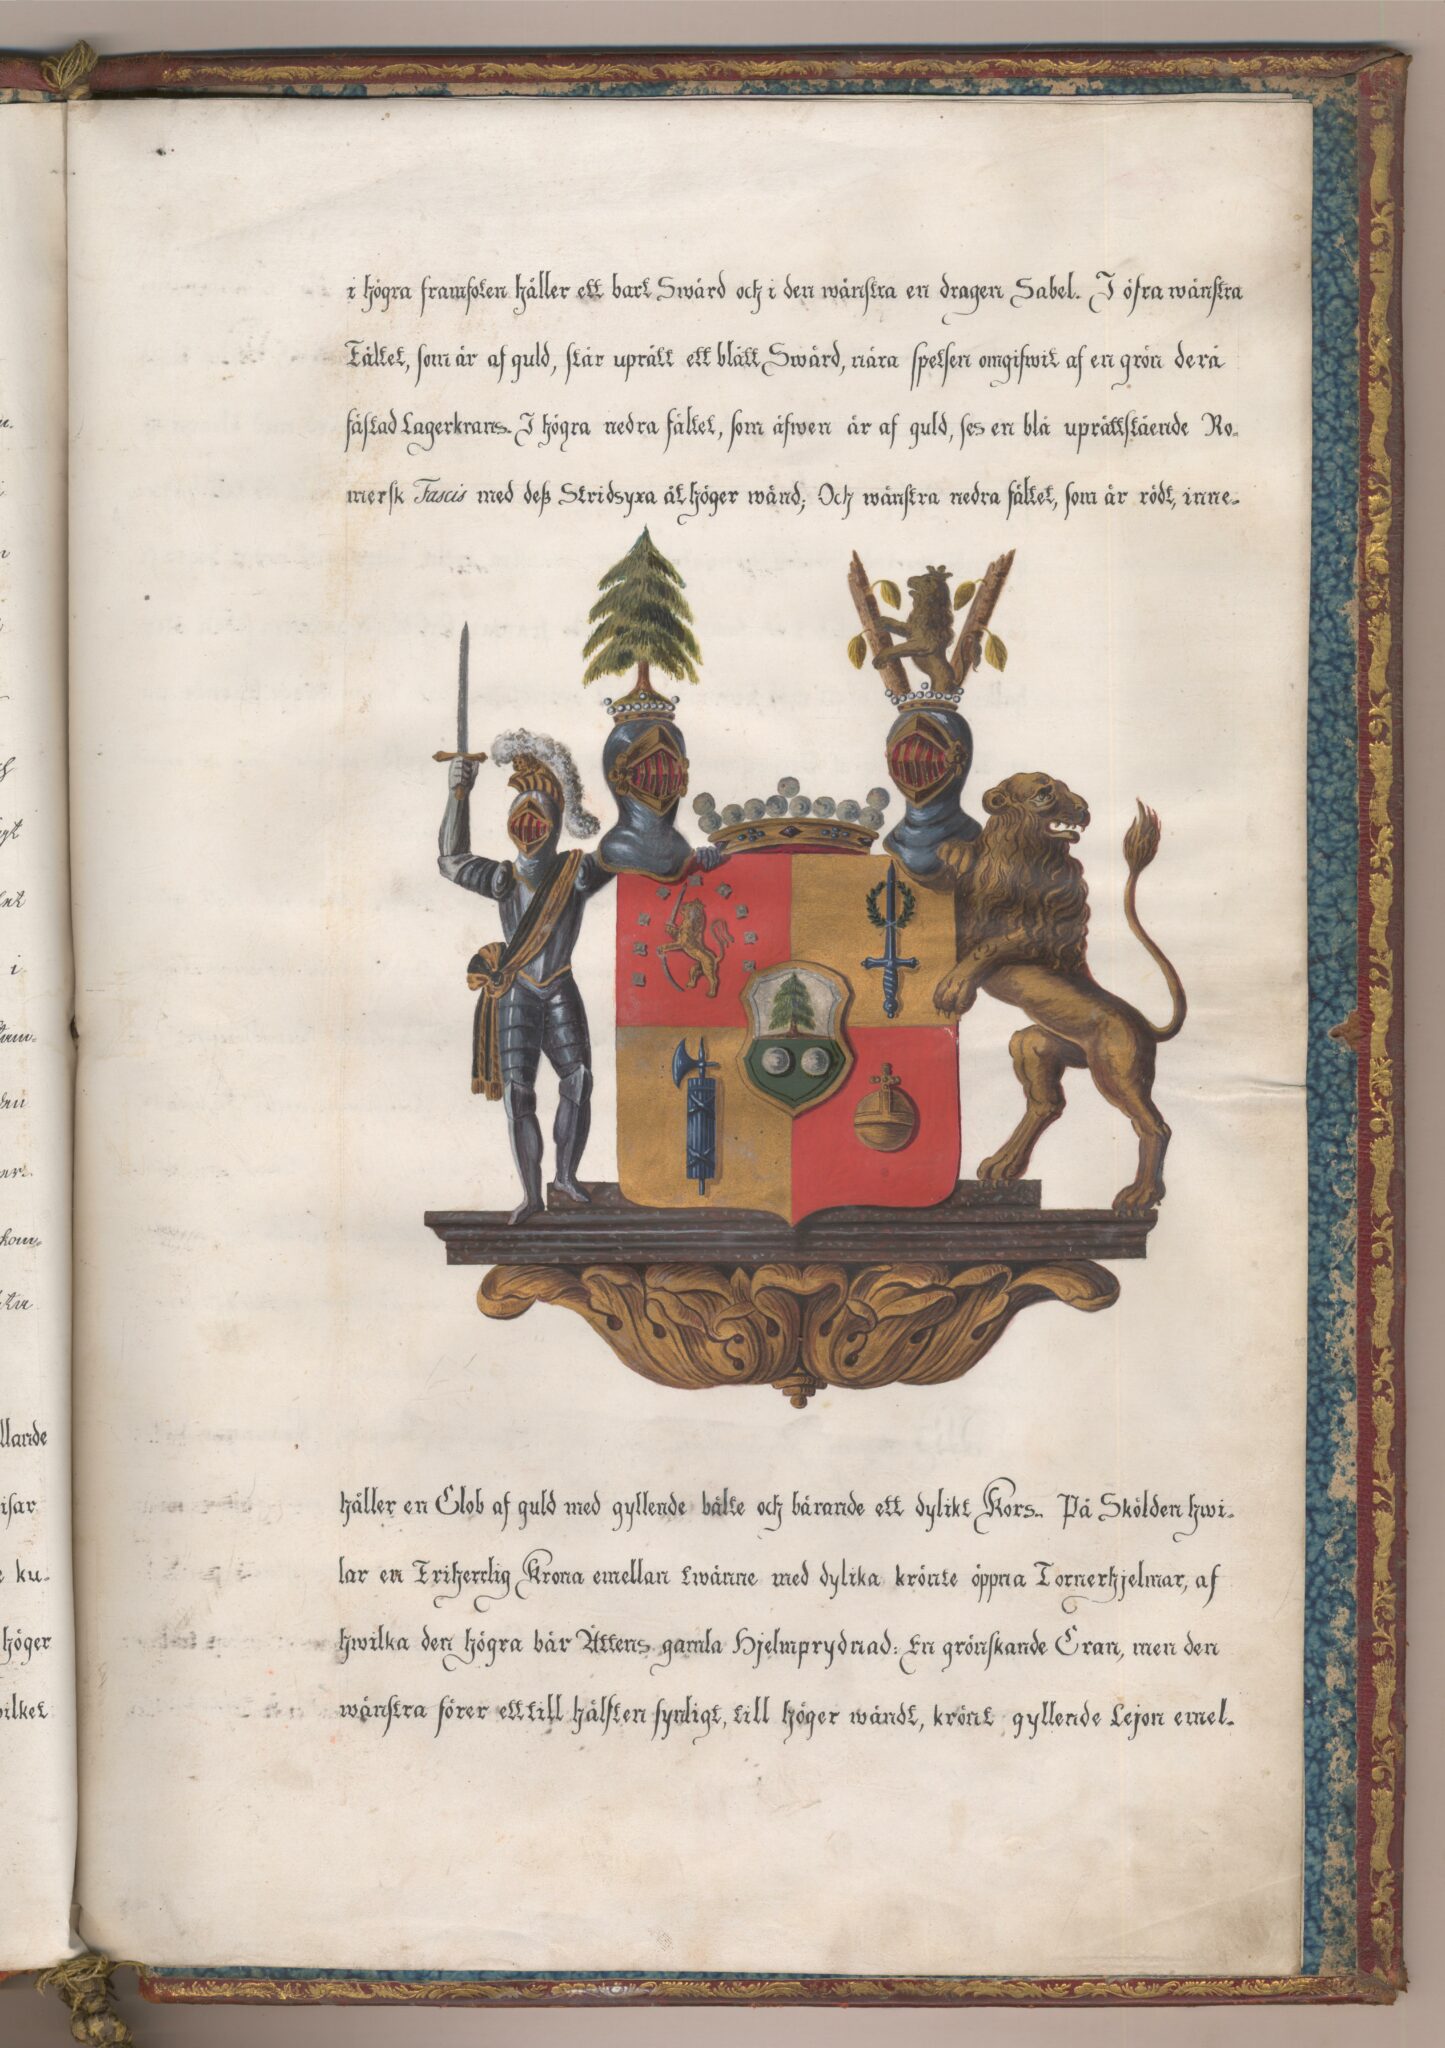 i högra framfoten håller ett bart Swärd och i den wänstra en dragen Sabel. I öfra wänstra
Fältet, som är af guld, står uprätt ett blått Swärd, nära spetsen omgifwit af en grön derå
fästad Lagerkrans. I högra nedra fältet, som äfwen är af guld, ses en blå uprättstående Ro-
mersk Fascis med deß Stridsyxa åt höger wänd; Och wänstra nedra fältet, som är rödt, inne-
håller en Glob af guld med gyllende bälte och bärande ett dylikt Kors. På Skölden hwi-
lar en Friherrlig Krona emellan twänne med dylika krönte öppna Tornerhjelmar, af
hwilka den högra bär Ättens gamla Hjelmprydnad: En grönskande Gran, men den
wänstra förer ett till hälften synligt, till höger wändt, krönt gyllende Lejon emel-
llande
isar
ku-
höger
wilket